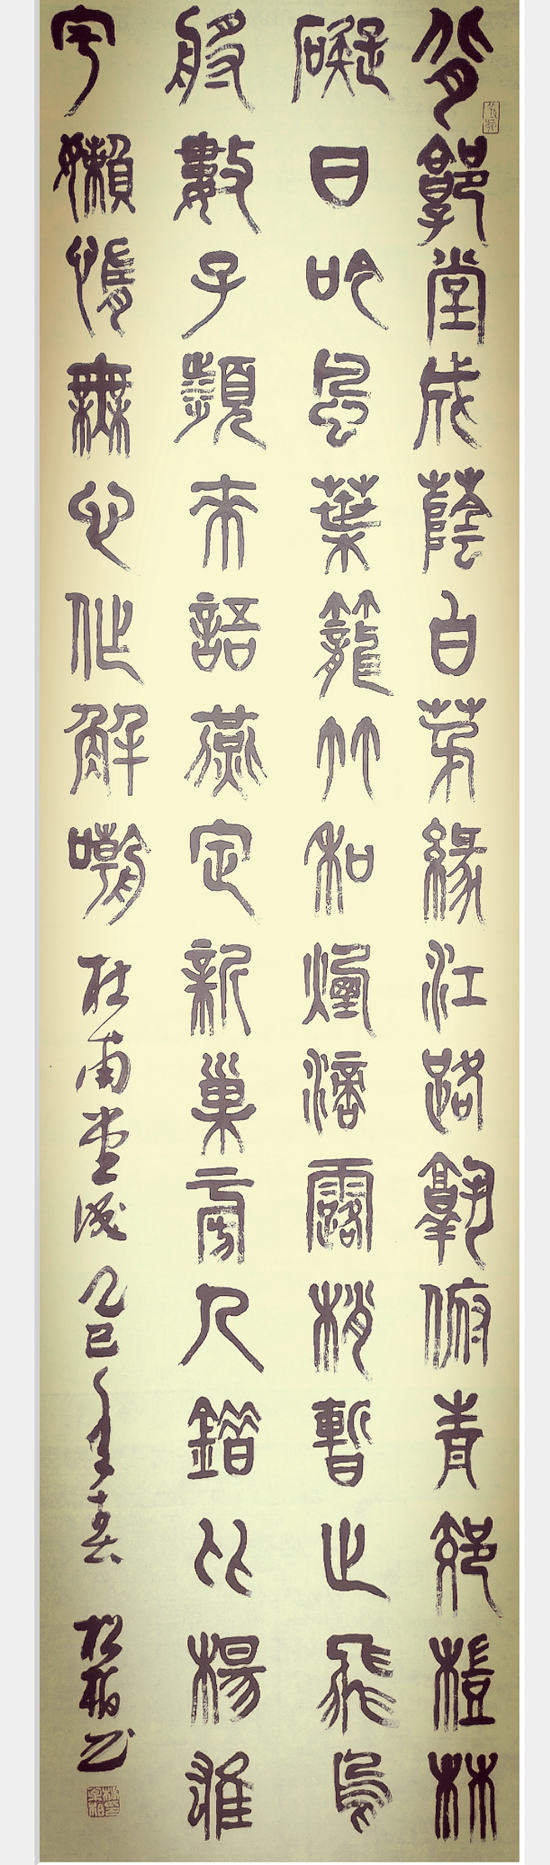 背郭堂成蔭白茅緣江路孰俯青郊榿林
礙日吟風葉籠竹和煙滴露梢暫止飛烏
將數子頻來語燕定新巢旁人錯比楊雄
宅嬾惰無心作解嘲 杜甫堂成 乙巳年春 松柏书